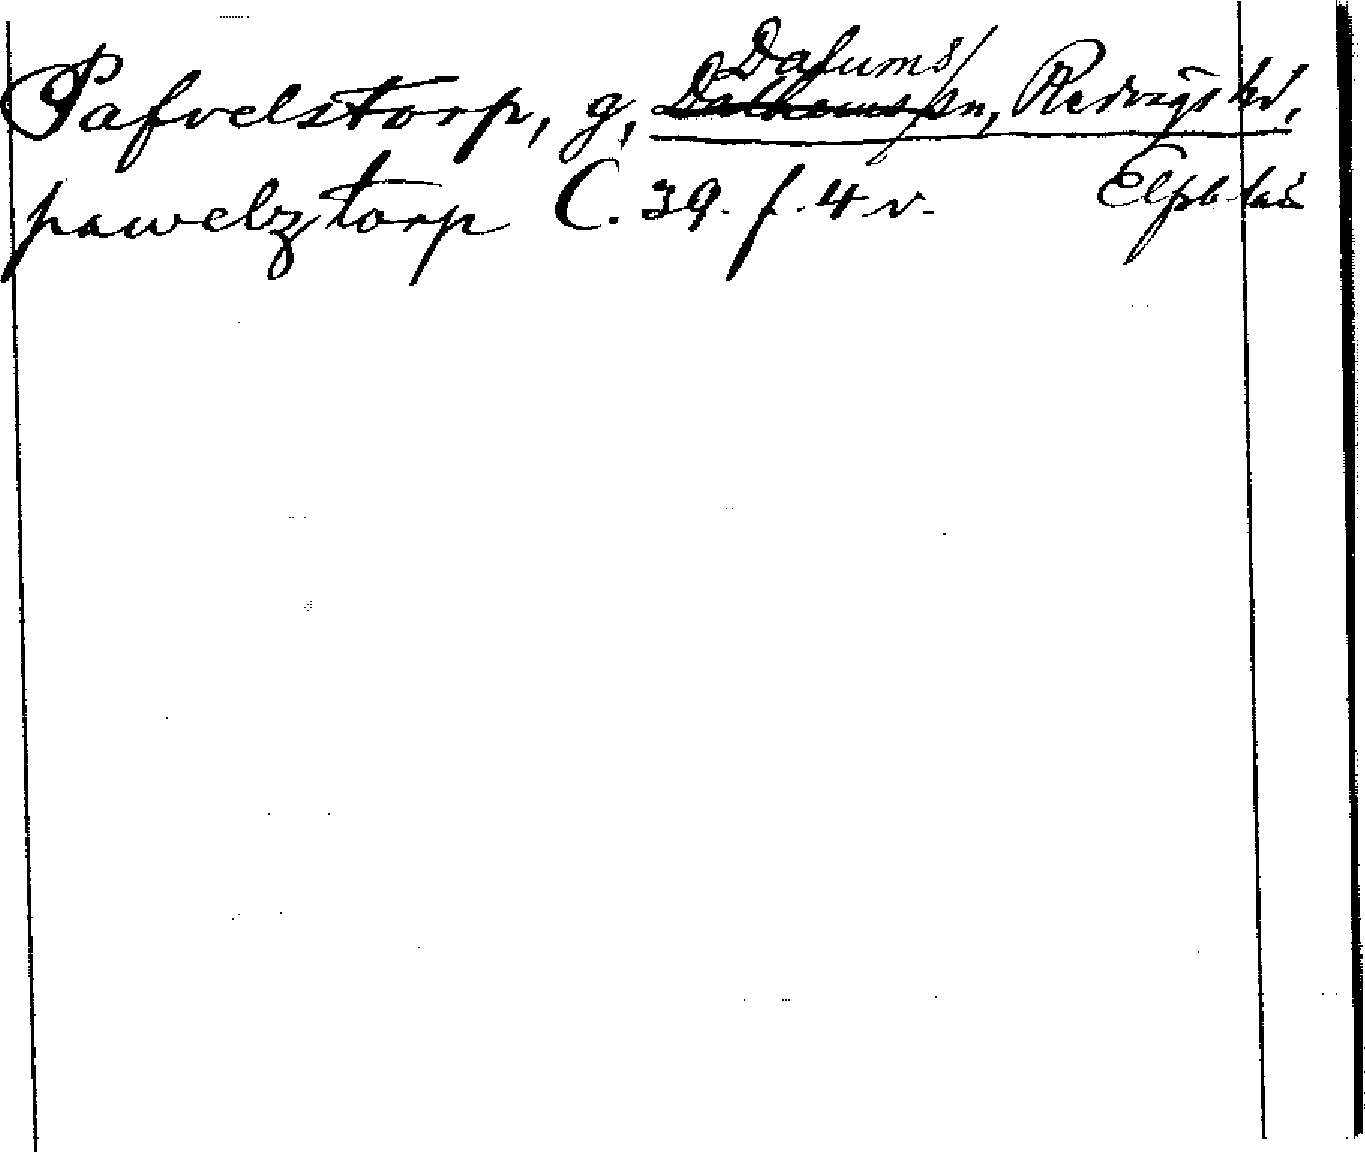 Dalums/
Pafvelstorp, g, Dalhems sn, Redvägs hd,
pawelztorp C. 39. f. 4 v. Elfsb. län